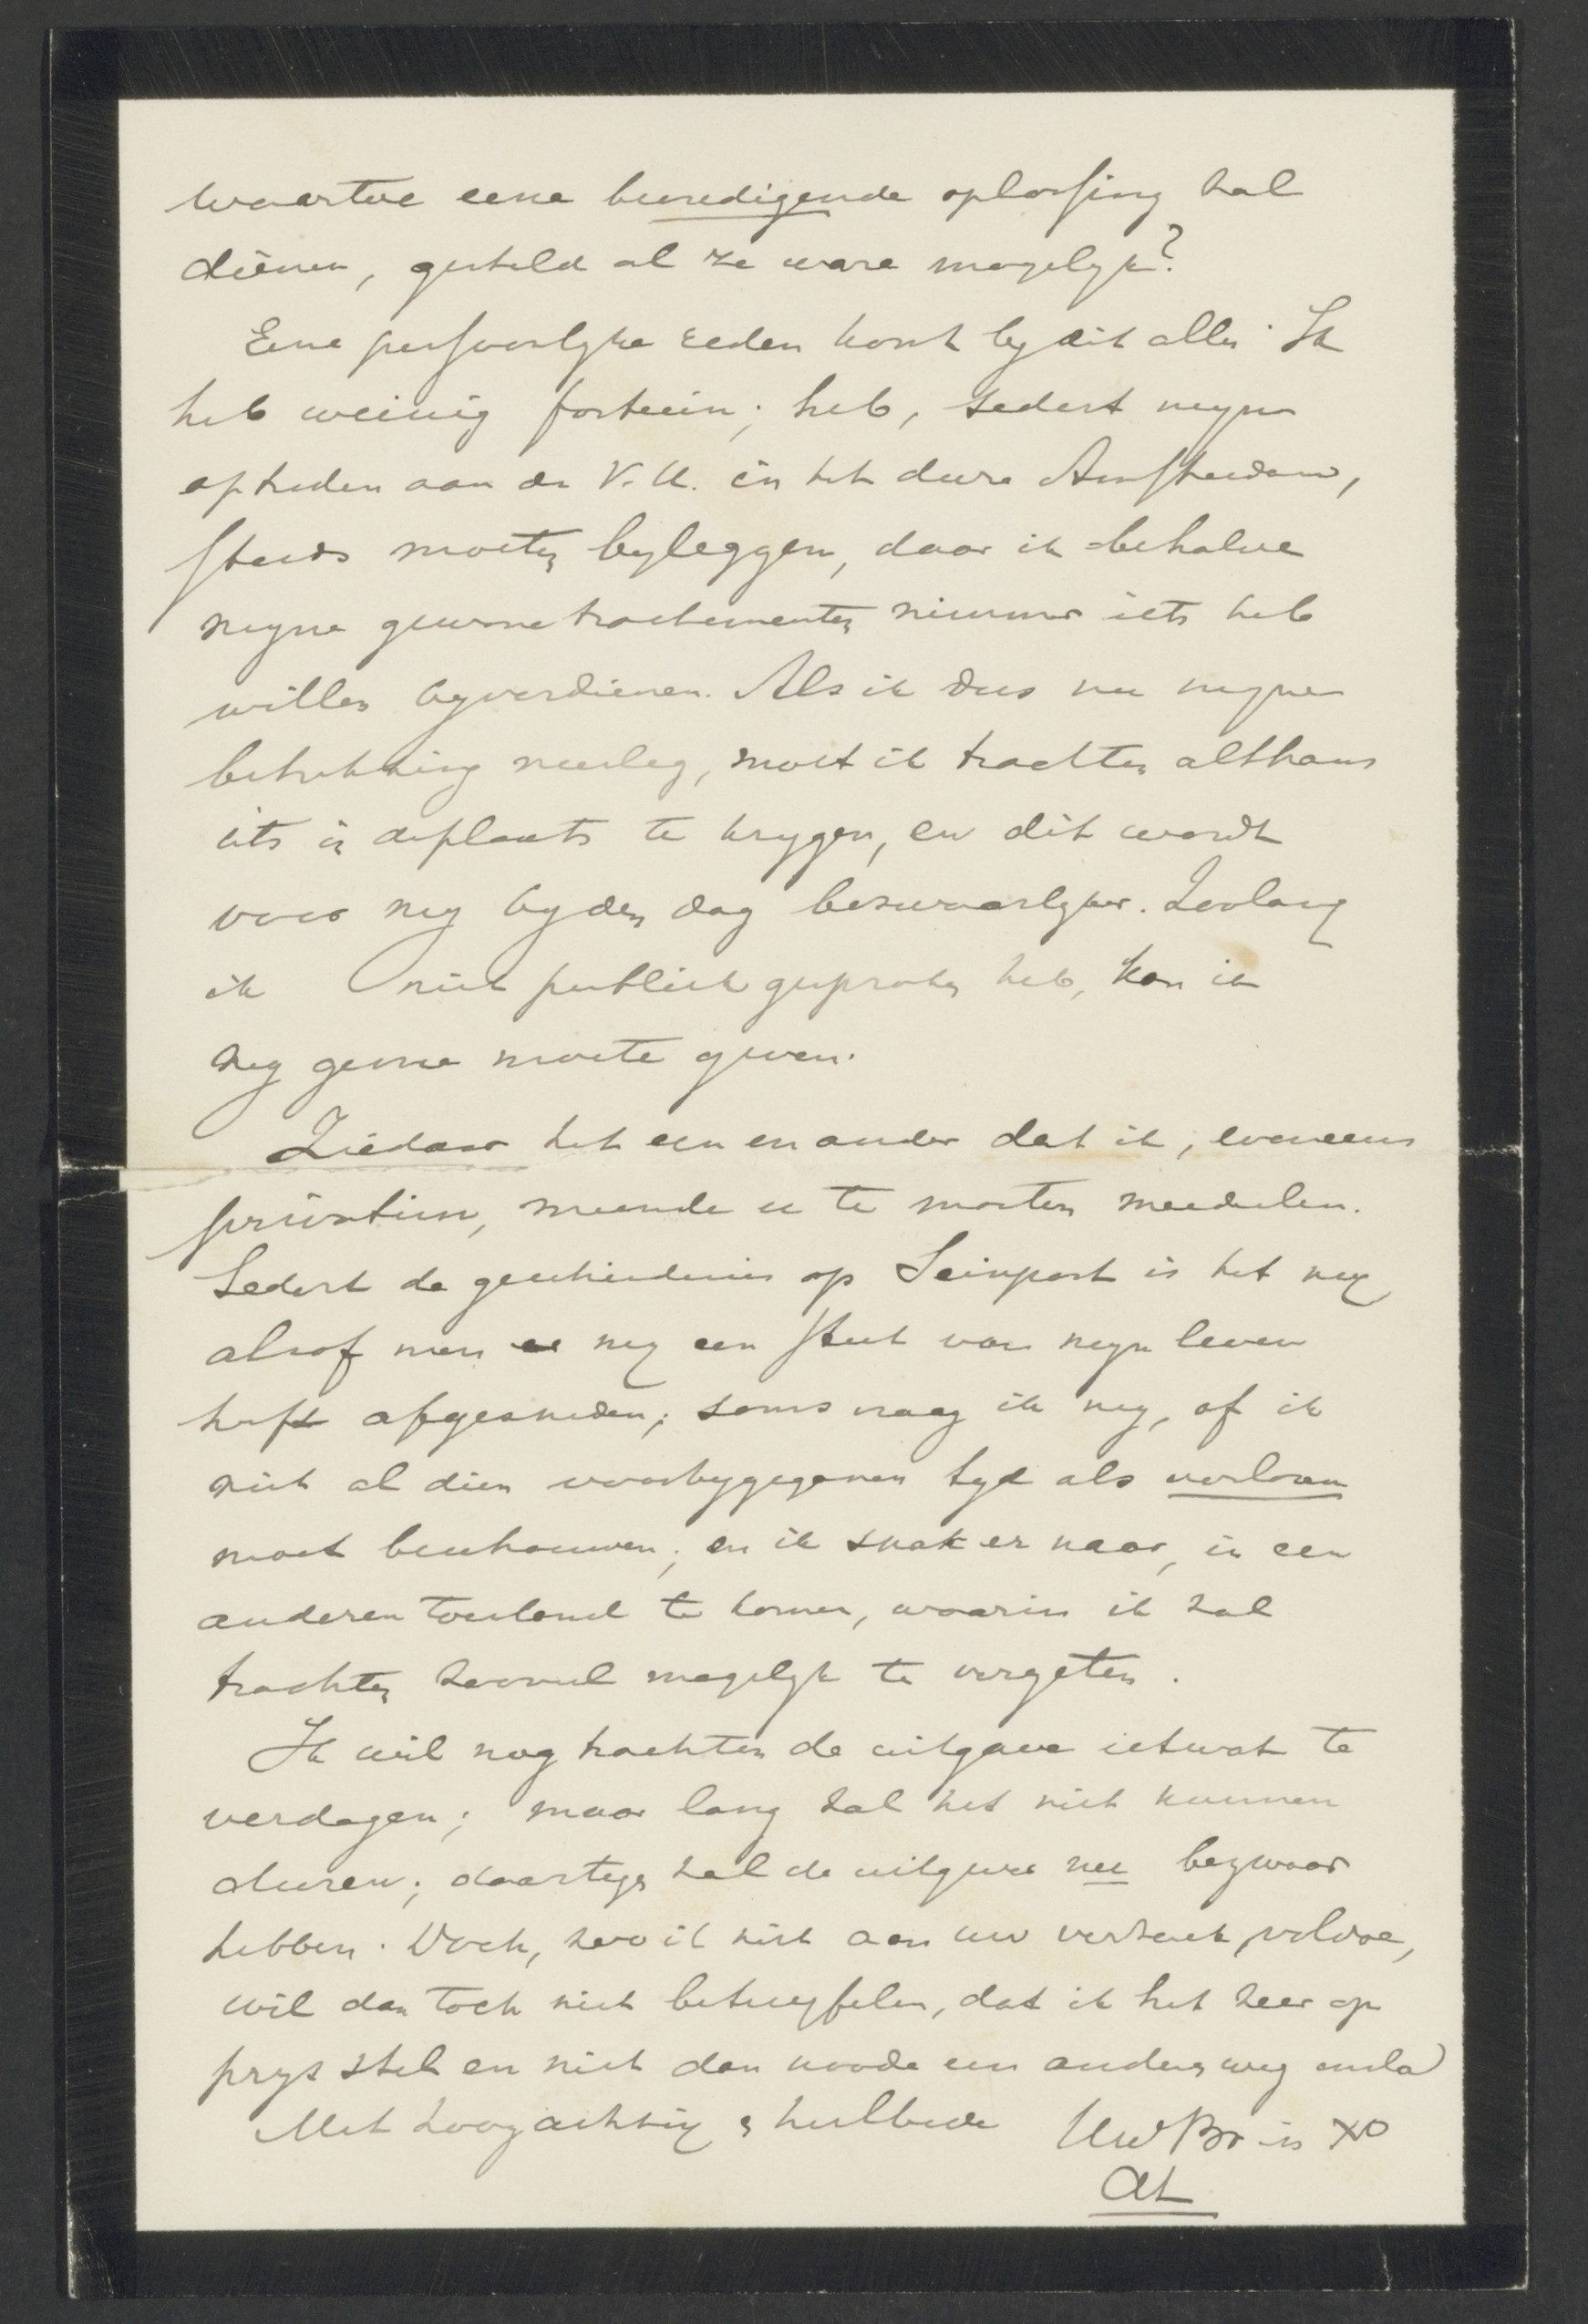 waartoe eene bevredigende oplossing zal
dienen, gesteld al ze ware mogelyk?
Eene persoonlyke reden komt by dit alles. Ik
heb weinig fortuin; heb, sedert myn
optreden aan de V. U. in het dure Amsterdam,
steeds moeten byleggen, daar ik behalve
myne gewone tractementen nimmer iets heb
willen byverdienen. Als ik dus nu myne
betrekking neerleg, moet ik trachten althans
iets in deplaats te krygen, en dit wordt
voor my by den dag bezwaarlyker. Zoolang
ik niet publiek gesproken heb, kan ik
my geene moeite geven.
Ziedaar het een en ander dat ik, eveneens
privatim, meende u te moeten meedeelen.
Sedert de geschiedenis op Seinpost is het my
alsof men my een stuk van myn leven
heeft afgesneden; soms vraag ik my, of ik
niet al dien voorbygeganen tyd als verloren
moet beschouwen; en ik snak er naar, in een
anderen toestand te komen, waarin ik zal
trachten zooveel mogelyk te vergeten.
Ik wil nog trachten de uitgave ietwat te
verdagen; maar lang zal het niet kunnen
duren; daartegen zal de uitgever nu bezwaar
hebben. Doch, zoo ik niet aan uw verzoek voldoe,
wil dan toch niet betwyfelen, dat ik het zeer op
prys stel en niet dan noode een anderen weg insla
Met hoogachting & heilbede Uw Br in Xo
AL